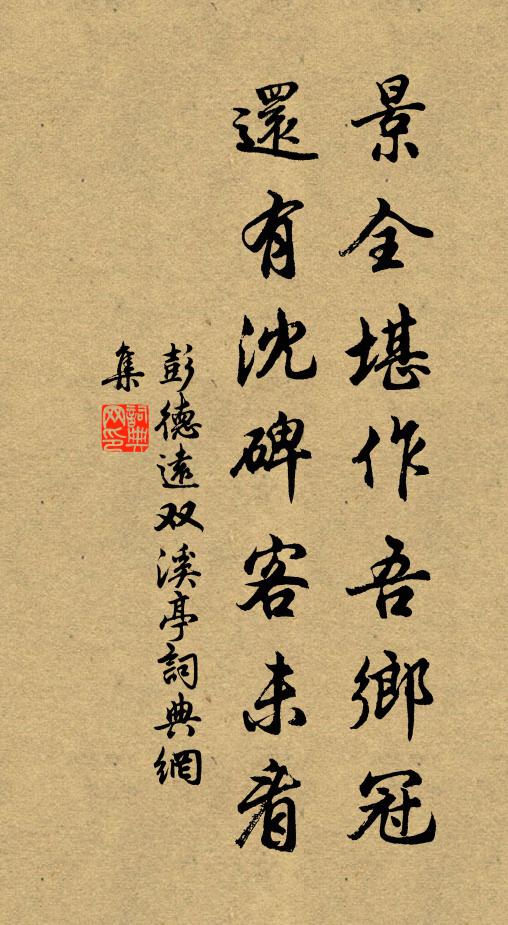 景全堪作吾鄉冠
還有沈碑客未看
彭德遠双溪亭詞典網
集
詞典网印